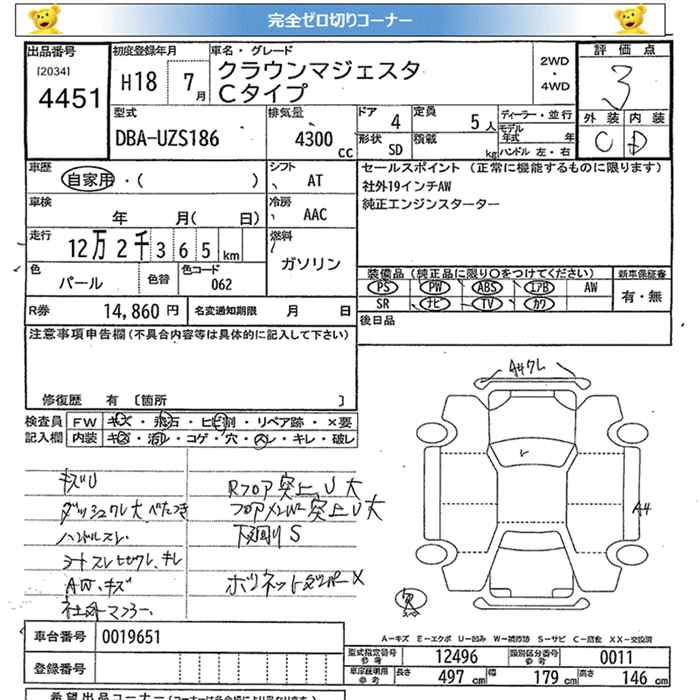 完全ゼロ切りコーナー
出品番号 初度登録年月 車名・グレード 評価点
[2034] 4451 H18 7月 クラウンマジェスタ 2WD・4WD 3
Cタイプ
型式 排気量 ドア 4 定員 5人 ディーラー・並行 外装 内装
DBA-UZS186 4300cc 形状 SD 積載 kg モデル年式 年 C D
ハンドル 左・右
車歴 シフト セールスポイント (正常に機能するものに限ります)
自家用・( ) AT 社外19インチAW
車検 冷房 純正エンジンスターター
年 月( 日) AAC
走行 12万2千365km 燃料
ガソリン
色 色替 色コード 装備品(純正品に限り○をつけてください) 新車保証書
パール 062 PS PW ABS エアB AW 有・無
SR ナビ TV カワ
R券 14,860円 名変通知期限 月 日 後日品
注意事項申告欄(不具合内容等は具体的に記入して下さい)
修復歴 有 [箇所 ]
検査員 FW キズ・飛石・ヒビ割・リペア跡・×要
記入欄 内装 キズ・汚レ・コゲ・穴・スレ・キレ・破レ
AAクレ
キズU Rフロア突上U大
ダッシュクレ大 べたつき フロアメンバー突上U大
ハンドルスレ 下廻りS
シートスレヒビワレ、キレ
AW、キズ ボンネットダンパーX
社外マフラー
A4
欠
車台番号 0019651
登録番号
A-キズ E-エクボ U-凹み W-補修跡 S-サビ C-腐食 XX-交換済
型式指定番号 参考 12496 類別区分番号 参考 0011
車検証用 参考 長さ 497cm 幅 179cm 高さ 146cm
希望出品コーナー